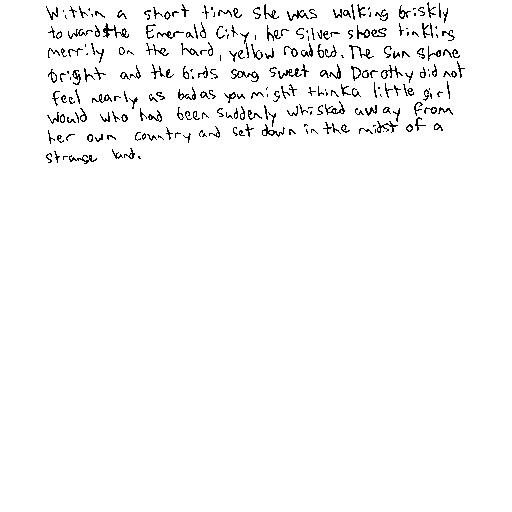 Within a short time she was walking briskly
towards the Emerald City, her silver shoes tinkling
merrily on the hard, yellow roadbed. The sun shone
bright and the birds sang sweet and Dorothy did not
feel nearly as bad as you might think a little girl
would who had been suddenly whisked away from
her own country and set down in the midst of a
strange land.